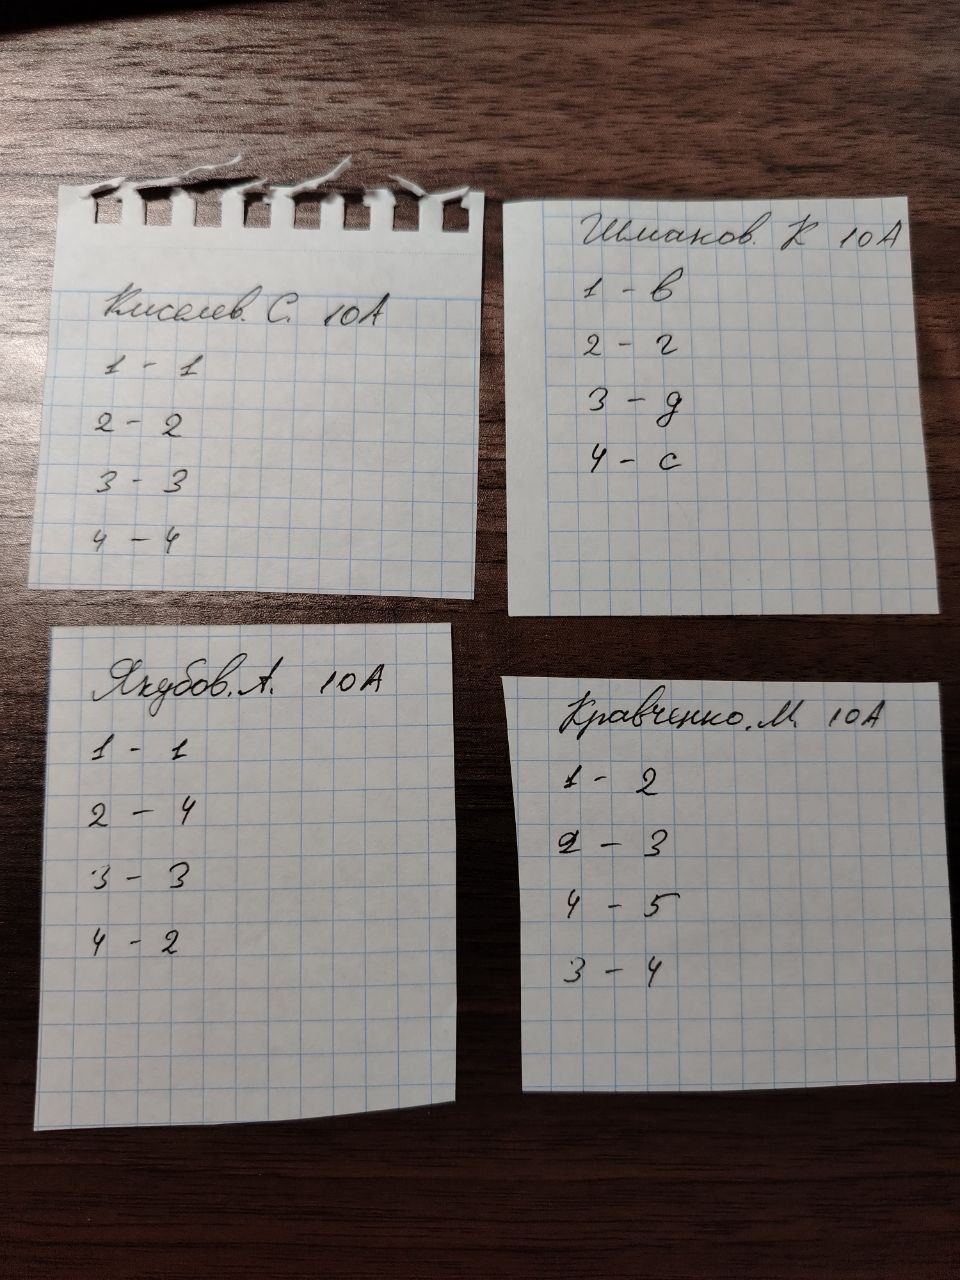 Киселев. С. 10А
1 - 1
2 - 2
3 - 3
4 - 4
Шманов. К 10А
1 - в
2 - г
3 - д
4 - с
Якубов. А. 10А
1 - 1
2 - 4
3 - 3
4 - 2
Кравченко. М. 10А
1 - 2
2 - 3
4 - 5
3 - 4